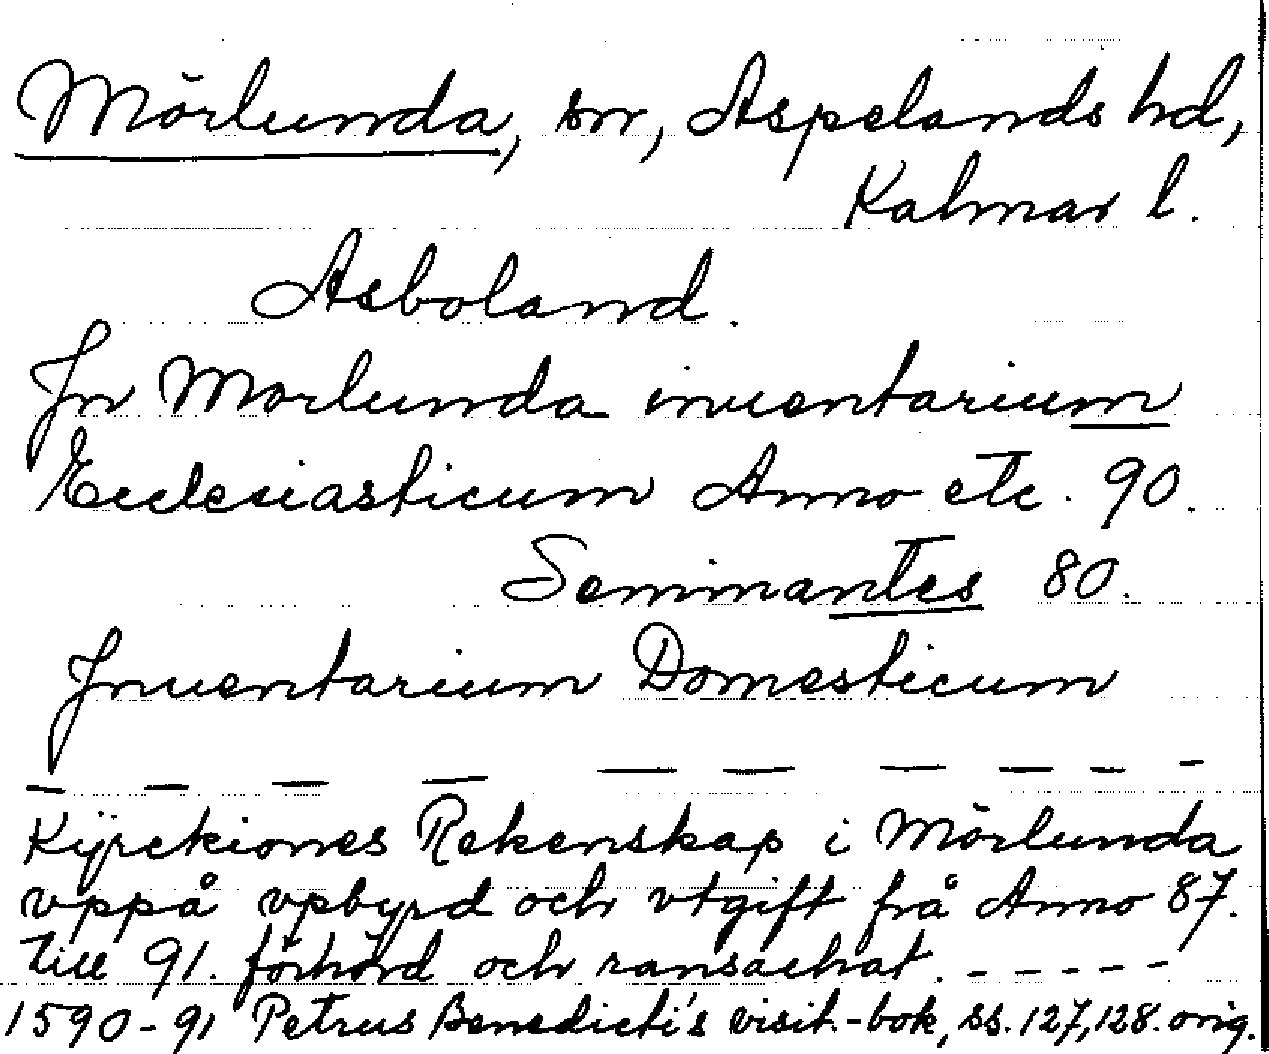 Mörlunda, sn, Aspelands hd,
Kalmar l.
Asboland.
In Mörlunda inuentarium
Ecclesiasticum Anno etc. 90.
Semimantes 80.
Inuentarium Domesticum
— — — — — — — — — —
Kÿrckiones Rekenskap i Mörlunda
vppå vpbyrd och vtgift frå Anno 87.
till 91. förhörd och ransachat. - - - - -
1590-91 Petrus Benedicti's visit.-bok, ss. 127, 128. orig.